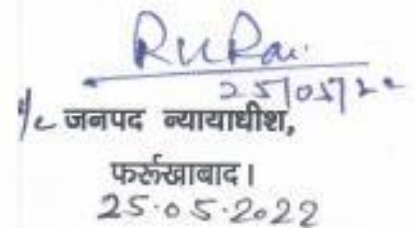 25/05/22
I/c जनपद न्यायाधीश,
फर्रूखाबाद।
25.05.2022